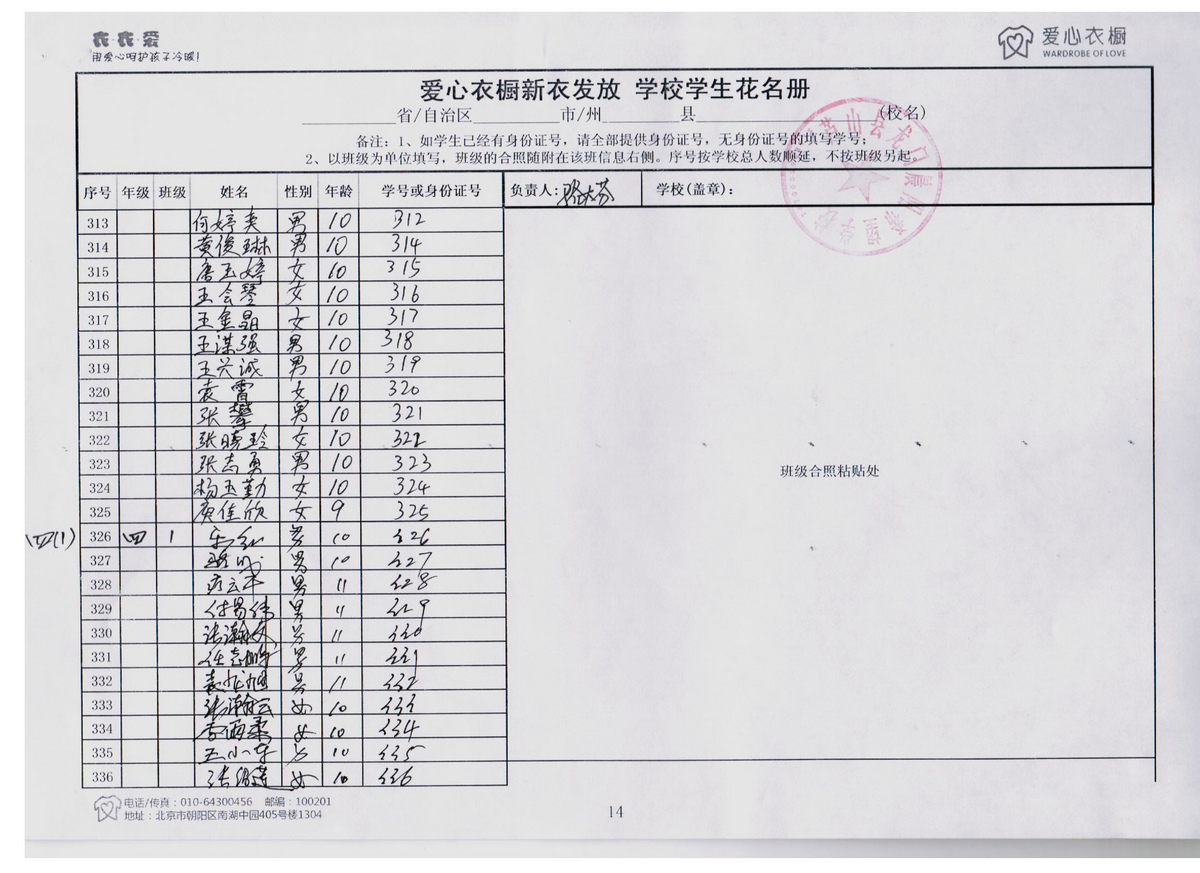 衣衣爱
用爱心呵护孩子冷暖!
爱心衣橱
WARDROBE OF LOVE
爱心衣橱新衣发放 学校学生花名册
省/自治区 市/州 县 (校名)
备注: 1、如学生已经有身份证号，请全部提供身份证号，无身份证号的填写学号;
2、以班级为单位填写，班级的合照随附在该班信息右侧。序号按学校总人数顺延，不按班级另起。
序号 年级 班级 姓名 性别 年龄 学号或身份证号 负责人: 学校(盖章):
313 何婷美 男 10 312
314 黄俊琳 男 10 314
315 唐玉婷 女 10 315
316 王会琴 女 10 316
317 王奎晶 女 10 317
318 王谋强 男 10 318
319 王兴诚 男 10 319
320 袁雪 女 10 320
321 张攀 男 10 321
322 张晓玲 女 10 322
323 张志勇 男 10 323
324 杨玉勤 女 10 324
325 庾佳欣 女 9 325
四(1) 326 四 1 男 10 326
327 男 10 327
328 男 11 328
329 付易伟 男 11 329
330 张瀚文 男 11 330
331 任志鹏 男 11 331
332 袁龙旭 男 11 332
333 张瀚云 女 10 333
334 李雨柔 女 10 334
335 王小华 女 10 335
336 女 10 336
班级合照粘贴处
电话/传真: 010-64300456 邮编: 100201
地址: 北京市朝阳区南湖中园405号楼1304
14